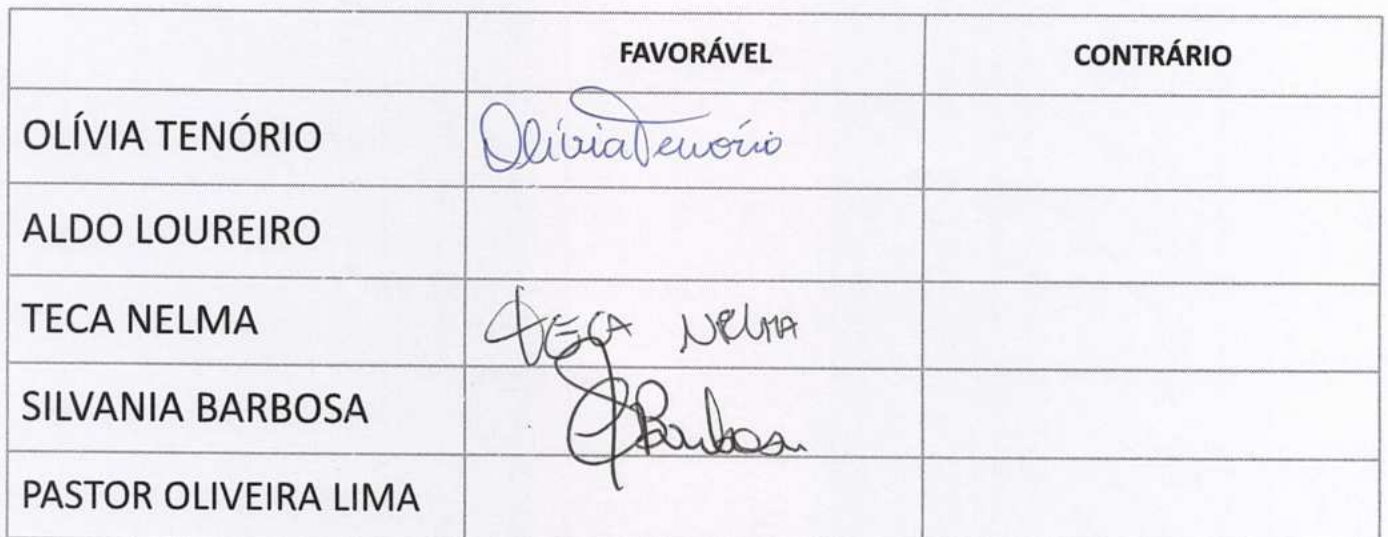 FAVORÁVEL CONTRÁRIO
OLÍVIA TENÓRIO Olívia Tenório
ALDO LOUREIRO
TECA NELMA TECA NELMA
SILVANIA BARBOSA SBarbosa
PASTOR OLIVEIRA LIMA